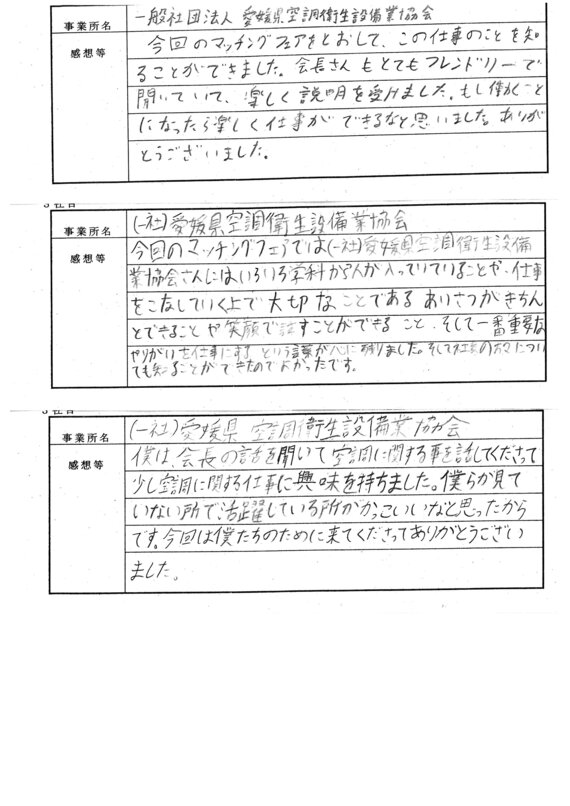 事業所名 一般社団法人 愛媛県空調衛生設備業協会
感想等 今回のマッチングフェアをとおして、この仕事のことを知
ることができました。会長さんもとてもフレンドリーで
聞いていて、楽しく説明を受けました。もし働くこと
になったら楽しく仕事ができるなと思いました。ありが
とうございました。
3社目
事業所名 (一社)愛媛県空調衛生設備業協会
感想等 今回のマッチングフェアでは(一社)愛媛県空調衛生設備
業協会さんにはいろいろ学科から人が入っていていることや、仕事
をこなしていく上で大切なことである あいさつがきちん
とできることや笑顔で話すことができること、そして一番重要な
やりがいを仕事にする という言葉が心に残りました。そして社長の についい
ても知ることができたのでよかったです。
3社目
事業所名 (一社)愛媛県 空調衛生設備業協会
感想等 僕は会長の話を聞いて空調に関する事を話してくださって
少し空調に関する仕事に興味を持ちました。僕らが見て
いない所で活躍している所がかっこいいなと思ったから
です。今回は僕たちのために来てくださってありがとうござい
ました。